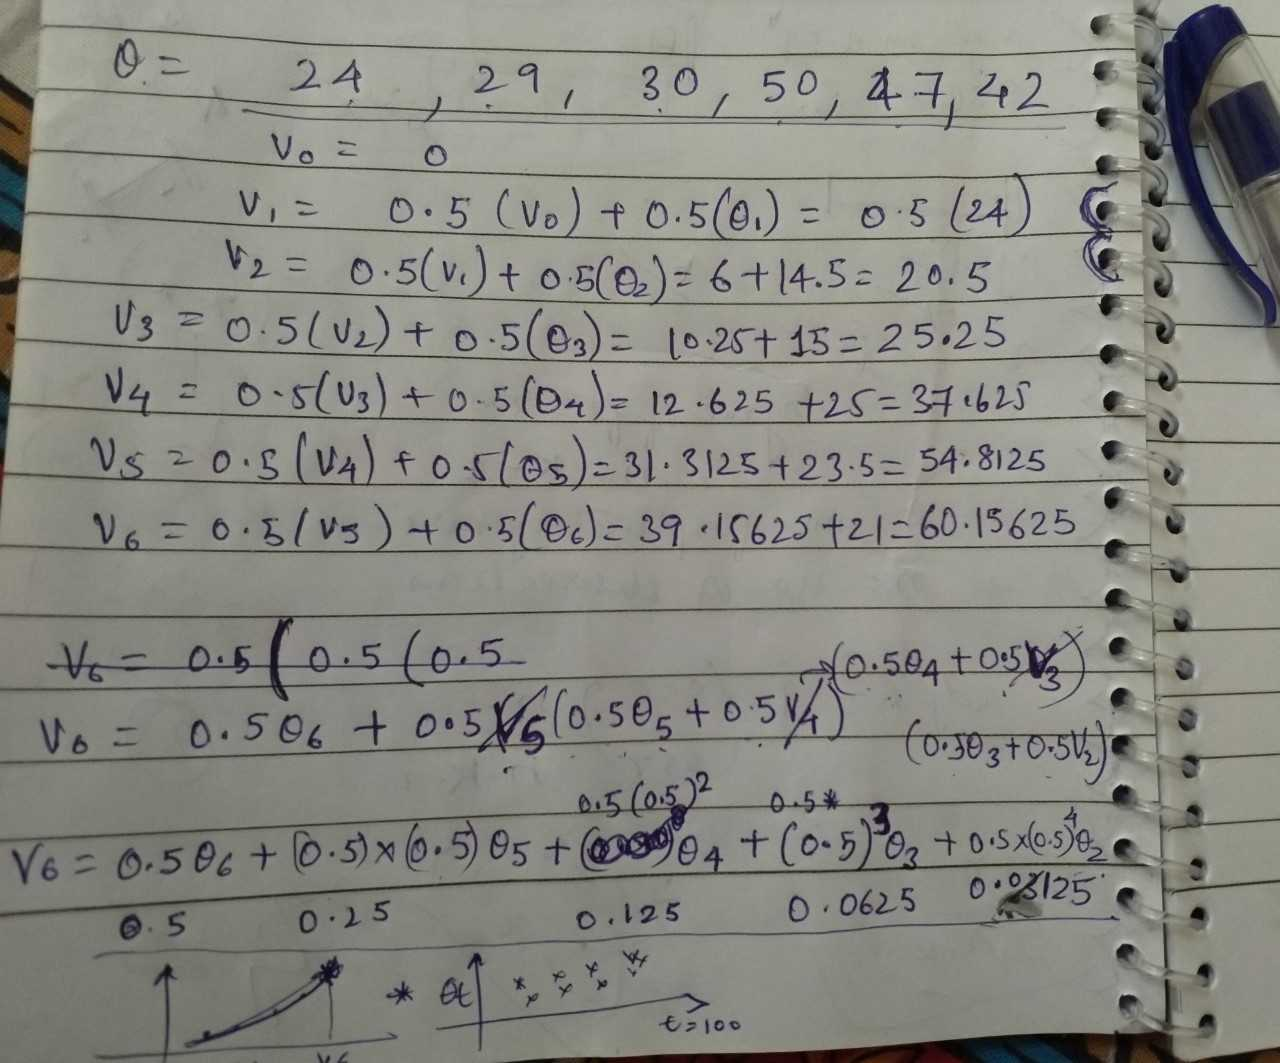 θ = 24, 29, 30, 50, 47, 42
V₀ = 0
V₁ = 0.5 (V₀) + 0.5(θ₁) = 0.5 (24)
V₂ = 0.5(V₁) + 0.5(θ₂) = 6 + 14.5 = 20.5
V₃ = 0.5(V₂) + 0.5(θ₃) = 10.25 + 15 = 25.25
V₄ = 0.5(V₃) + 0.5(θ₄) = 12.625 + 25 = 37.625
V₅ = 0.5(V₄) + 0.5(θ₅) = 31.3125 + 23.5 = 54.8125
V₆ = 0.5(V₅) + 0.5(θ₆) = 39.15625 + 21 = 60.15625
V₆ = 0.5 ( 0.5 ( 0.5
→(0.5θ₄ + 0.5V₃)
V₆ = 0.5θ₆ + 0.5V₅(0.5θ₅ + 0.5V₄)
(0.5θ₃ + 0.5V₂)
0.5(0.5)² 0.5*
V₆ = 0.5θ₆ + (0.5)×(0.5)θ₅ + θ₄ + (0.5)³θ₃ + 0.5×(0.5)⁴θ₂
0.5 0.25 0.125 0.0625 0.03125
* θt
t=100
V6